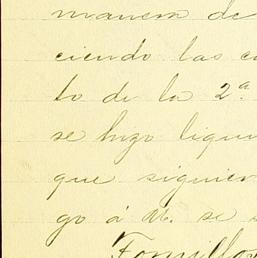 manera de
ciendo las co
to de la 2.ª
se hizo liqui
que siguier
go á M. se
Tornillo